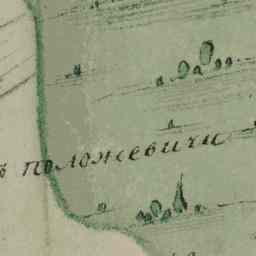 ъ положевичи